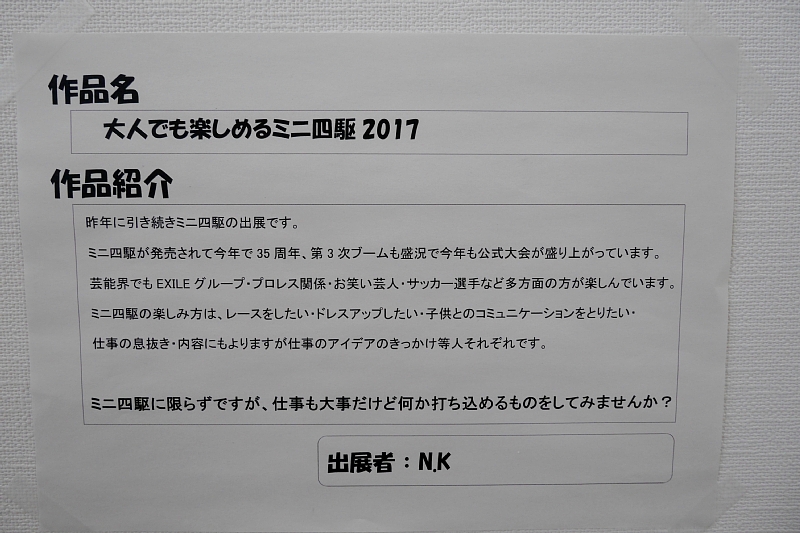 作品名
大人でも楽しめるミニ四駆 2017
作品紹介
昨年に引き続きミニ四駆の出展です。
ミニ四駆が発売されて今年で 35 周年、第 3 次ブームも盛況で今年も公式大会が盛り上がっています。
芸能界でも EXILE グループ・プロレス関係・お笑い芸人・サッカー選手など多方面の方が楽しんでいます。
ミニ四駆の楽しみ方は、レースをしたい・ドレスアップしたい・子供とのコミュニケーションをとりたい・
仕事の息抜き・内容にもよりますが仕事のアイデアのきっかけ等人それぞれです。
ミニ四駆に限らずですが、仕事も大事だけど何か打ち込めるものをしてみませんか？
出展者：N.K